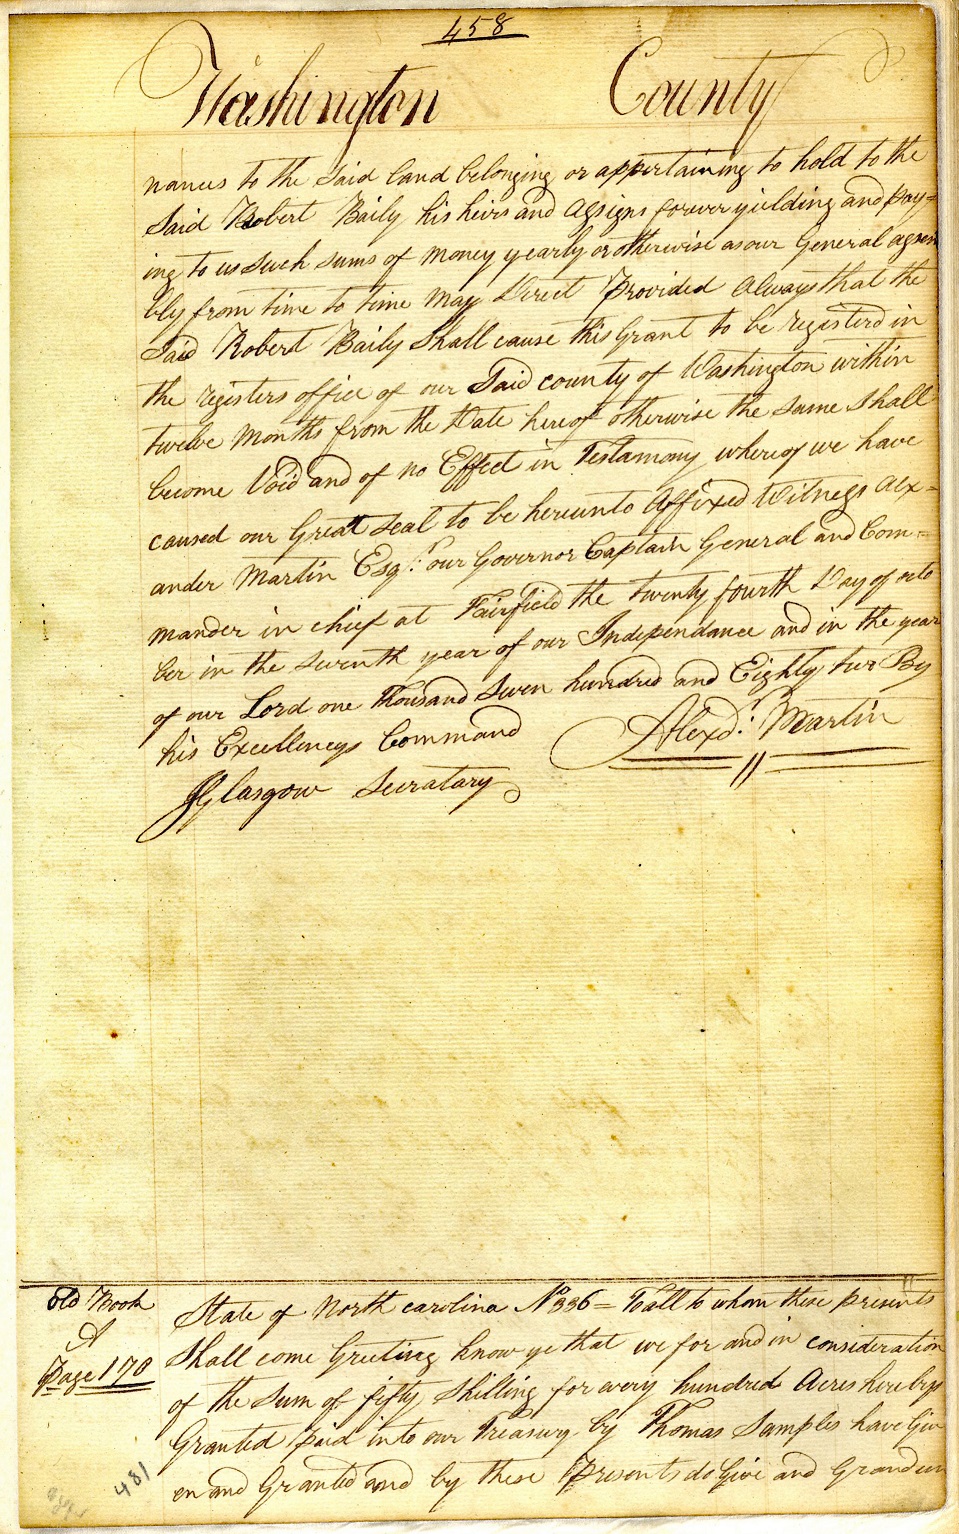 458
Washington County
nances to the Said land belonging or appertaining to hold to the
Said Robert Baily his heirs and assigns forever yielding and pay=
ing to us such sums of money yearly or otherwise as our General assem
bly from time to time may Direct Provided always that the
Said Robert Baily Shall cause this Grant to be registerd in
the registers office of our Said county of Washington within
twelve months from the Date hereof otherwise the same Shall
become Void and of no Effect in Testamony whereof we have
caused our Great Seal to be hereunto Affixed Witness Alex=
ander Martin Esqr. our Governor Captain General and Com=
mander in chief at Fairfield the twenty fourth Day of octo
ber in the seventh year of our Independance and in the year
of our Lord one Thousand Seven hundred and Eighty two By
his Excellencys Command Alexdr. Martin
JGlasgow Secratary
old Book
A
Page 170
State of North carolina No 336 = To all to whom these presents
Shall come Greeting know ye that we for and in consideration
of the Sum of fifty Shilling for every hundred Acres hereby
Granted paid into our Treasury by Thomas Samples have Giv
en and Granted and by these Presents do Give and Grand un
481